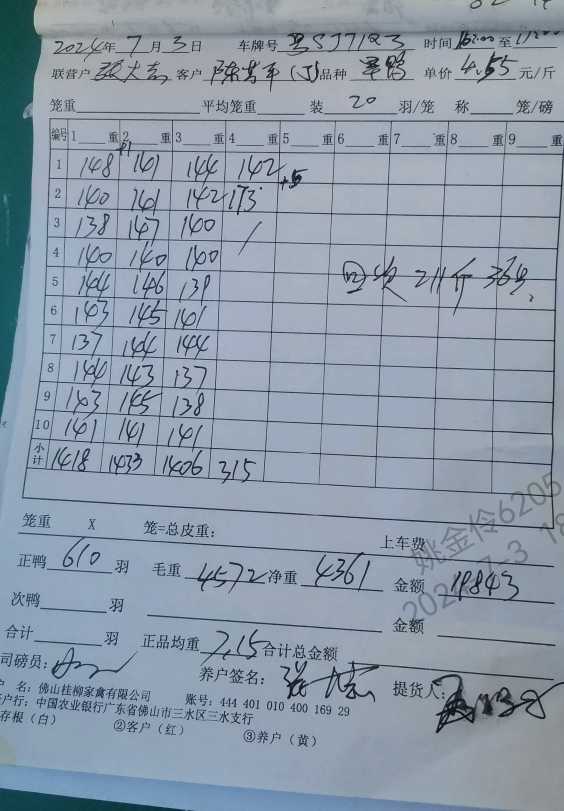 2024年7月3日 车牌号 粤SJ7123 时间 16:00 至
联营户 客户 (J)品种 单鸭 单价 4.55 元/斤
笼重 平均笼重 装 20 羽/笼 称 笼/磅
编号 1 重 2 重 3 重 4 重 5 重 6 重 7 重 8 重 9
1 148 +1 141 144 142
2 140 141 142 173 +5
3 138 147 140 /
4 140 140 140
回皮 211斤 36只
5 144 146 139
6 143 145 141
7 137 144 144
8 144 143 137
9 143 145 138
10 141 141 141
小计 1418 1433 1406 315
笼重 X 笼=总皮重: 上车费
正鸭 610 羽 毛重 4572 净重 4361 金额 19843
次鸭 羽 金额
合计 羽 正品均重 7.15 合计总金额
司磅员: 养户签名: 提货人:
户 名: 佛山桂柳家禽有限公司 账号: 444 401 010 400 169 29
户行: 中国农业银行广东省佛山市三水区三水支行
存根(白) ②客户(红) ③养户(黄)
姚金伶6205